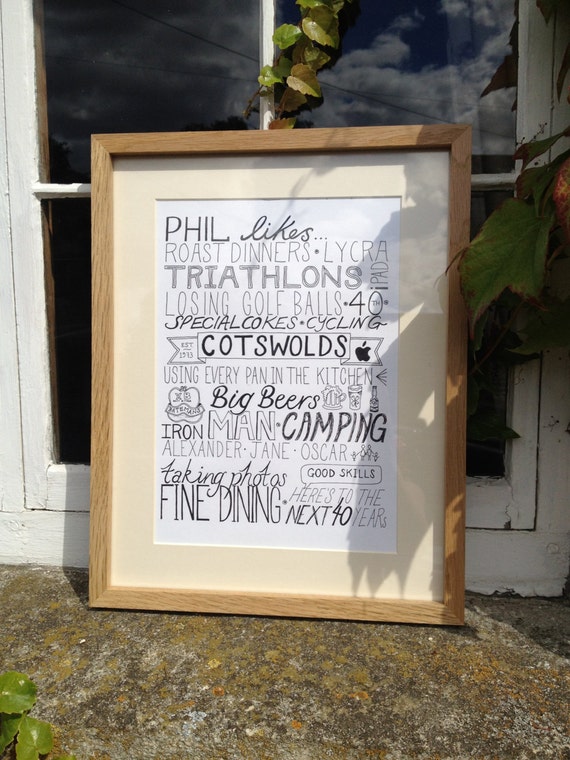 PHIL likes...
ROAST DINNERS · LYCRA
TRIATHLONS iPAD
LOSING GOLF BALLS · 40TH
SPECIAL COKES · CYCLING
EST. 1973 COTSWOLDS
USING EVERY PAN IN THE KITCHEN
Big Beers
IRON MAN · CAMPING
ALEXANDER · JANE · OSCAR
taking photos GOOD SKILLS
FINE DINING · HERE'S TO THE
NEXT 40 YEARS